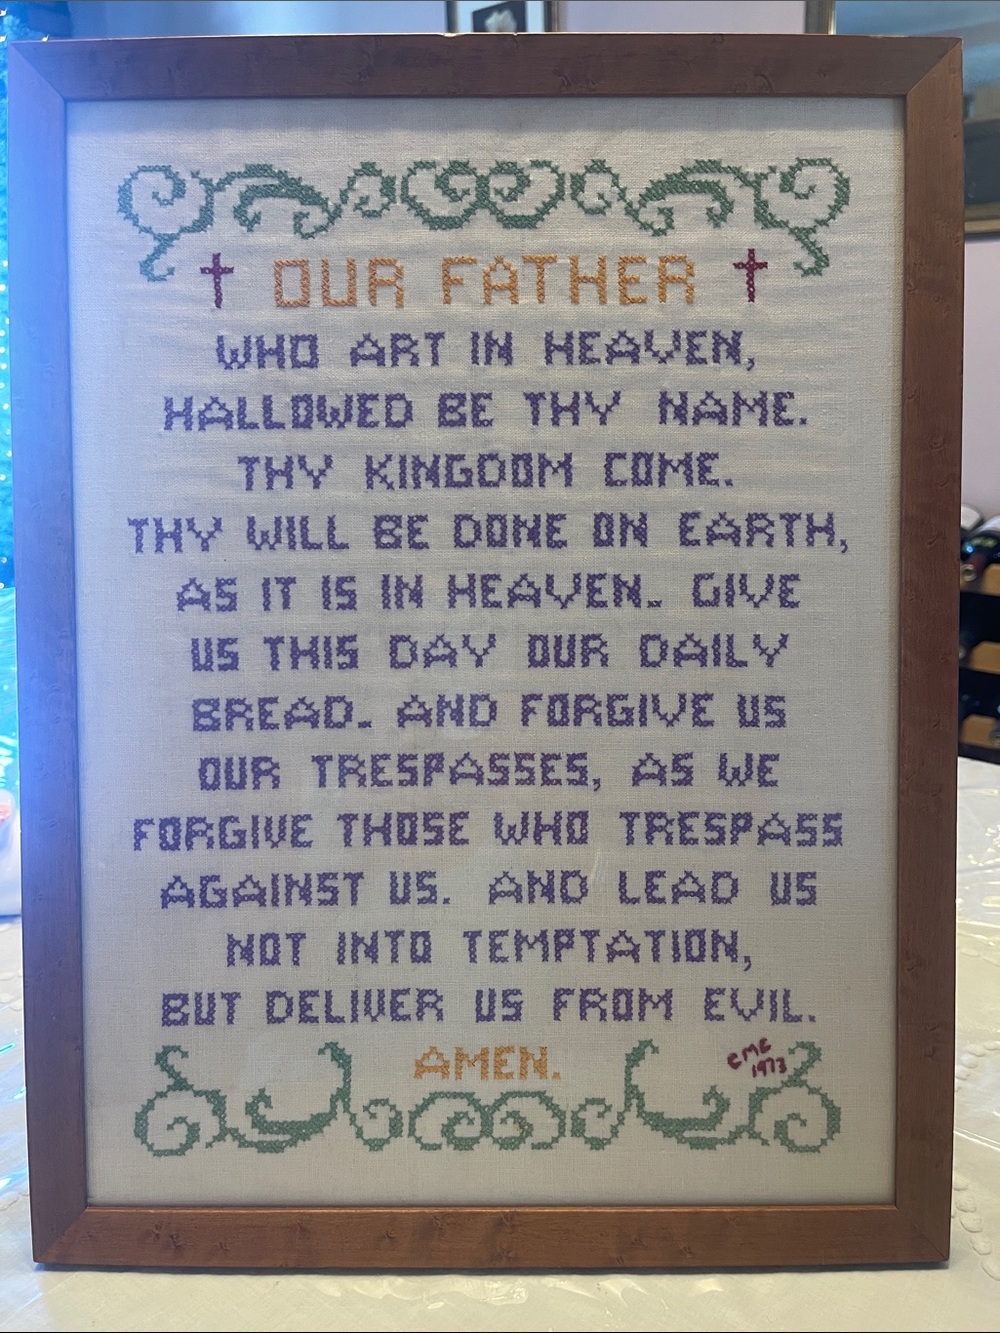 † OUR FATHER †
WHO ART IN HEAVEN,
HALLOWED BE THY NAME.
THY KINGDOM COME.
THY WILL BE DONE ON EARTH,
AS IT IS IN HEAVEN. GIVE
US THIS DAY OUR DAILY
BREAD. AND FORGIVE US
OUR TRESPASSES, AS WE
FORGIVE THOSE WHO TRESPASS
AGAINST US. AND LEAD US
NOT INTO TEMPTATION,
BUT DELIVER US FROM EVIL.
AMEN.
1973